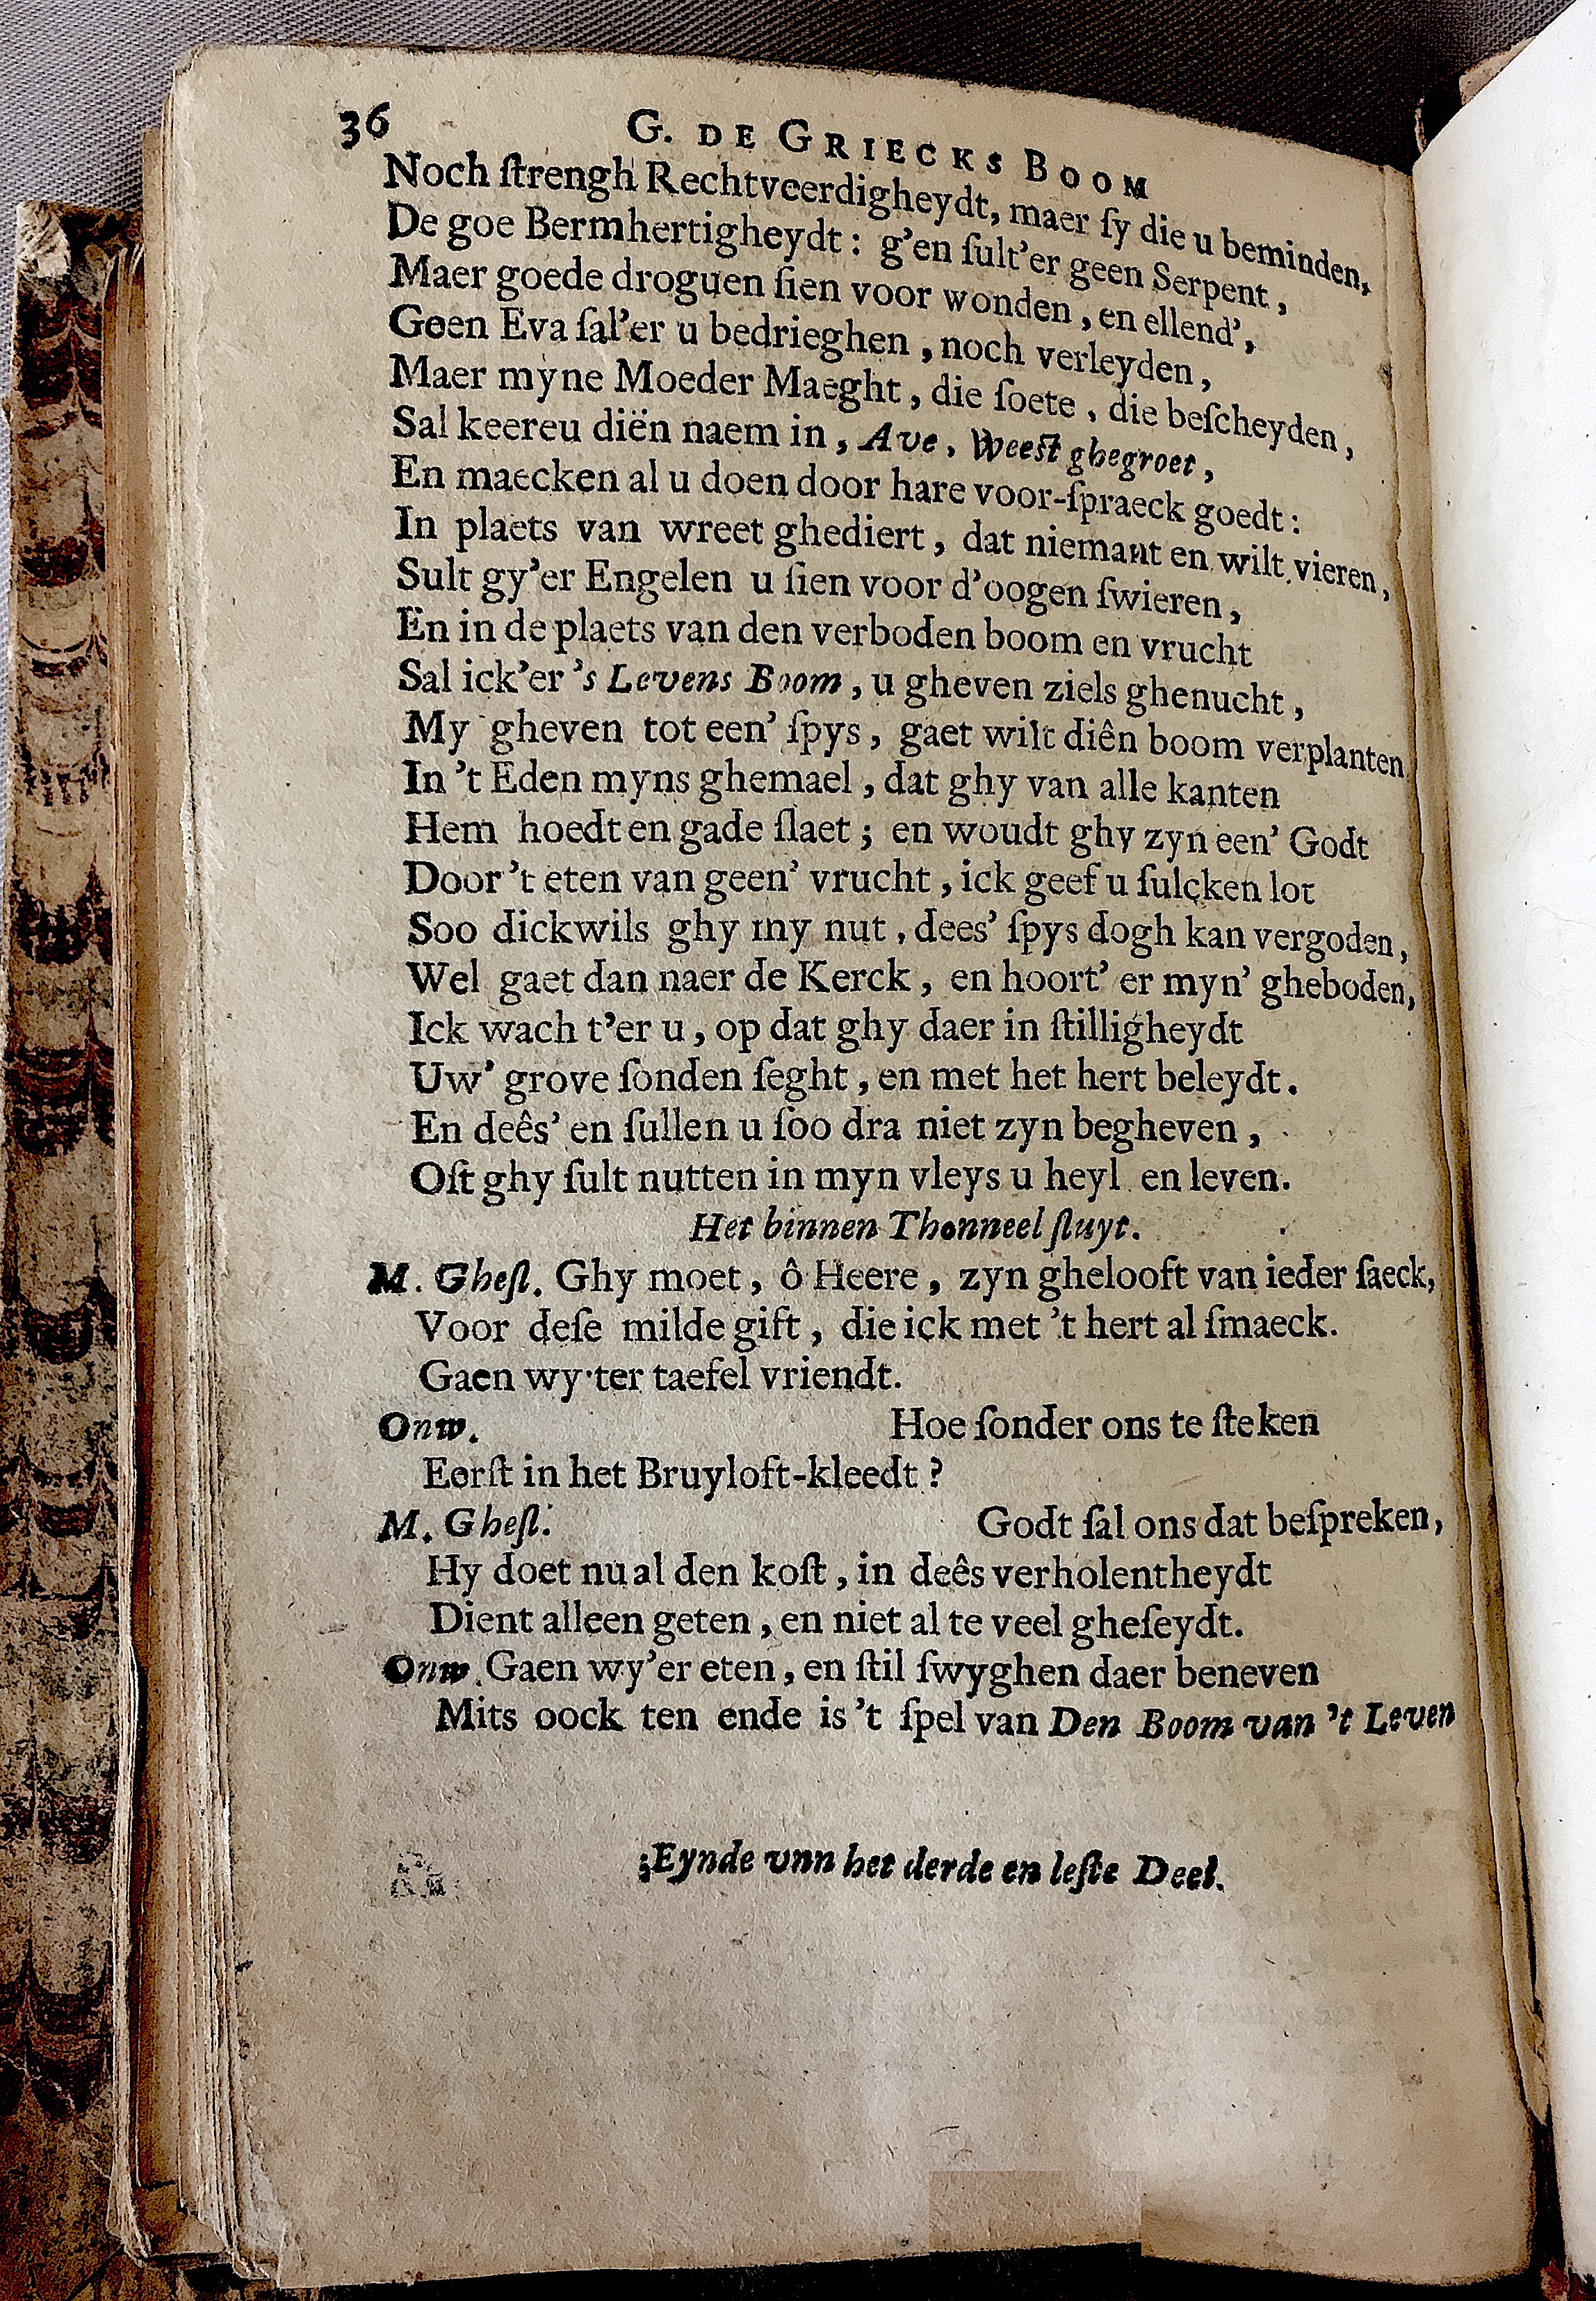 36 G. DE GRIECKS BOOM
Noch ſtrengh Rechtveerdigheydt, maer ſy die u beminden,
De goe Bermhertigheydt : g'en ſult'er geen Serpent,
Maer goede droguen ſien voor wonden, en ellend',
Geen Eva ſal'er u bedrieghen, noch verleyden,
Maer myne Moeder Maeght, die ſoete, die beſcheyden,
Sal keereu diën naem in, Ave, Weeſt ghegroet,
En maecken al u doen door hare voor-ſpraeck goedt :
In plaets van wreet ghediert, dat niemant en wilt vieren,
Sult gy'er Engelen u ſien voor d'oogen ſwieren,
En in de plaets van den verboden boom en vrucht
Sal ick'er 's Levens Boom, u gheven ziels ghenucht,
My gheven tot een' ſpys, gaet wilt diên boom verplanten
In 't Eden myns ghemael, dat ghy van alle kanten
Hem hoedt en gade ſlaet ; en woudt ghy zyn een' Godt
Door 't eten van geen' vrucht, ick geef u ſulcken lot
Soo dickwils ghy my nut, dees' ſpys dogh kan vergoden,
Wel gaet dan naer de Kerck, en hoort' er myn' gheboden,
Ick wach t'er u, op dat ghy daer in ſtilligheydt
Uw' grove ſonden ſeght, en met het hert beleydt.
En deês' en ſullen u ſoo dra niet zyn begheven,
Oſt ghy ſult nutten in myn vleys u heyl en leven.
Het binnen Thonneel ſluyt.
M. Gheſl. Ghy moet, ô Heere, zyn ghelooft van ieder ſaeck,
Voor deſe milde gift, die ick met 't hert al ſmaeck.
Gaen wy ter taefel vriendt.
Onw. Hoe ſonder ons te ſteken
Eerſt in het Bruyloft-kleedt ?
M. Gheſl. Godt ſal ons dat beſpreken,
Hy doet nu al den koſt, in deês verholentheydt
Dient alleen geten, en niet al te veel gheſeydt.
Onw. Gaen wy'er eten, en ſtil ſwyghen daer beneven
Mits oock ten ende is 't ſpel van Den Boom van 't Leven
Eynde vnn het derde en leſte Deel.